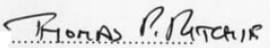 Thomas P. Ritchie